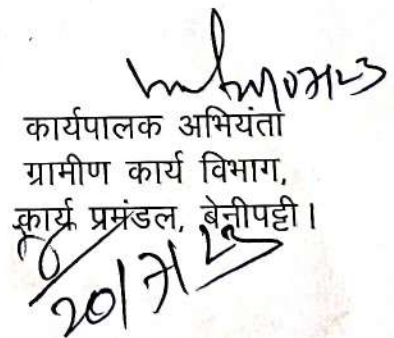 कार्यपालक अभियंता
ग्रामीण कार्य विभाग,
कार्य प्रमंडल, बेनीपट्टी।
20/7/23